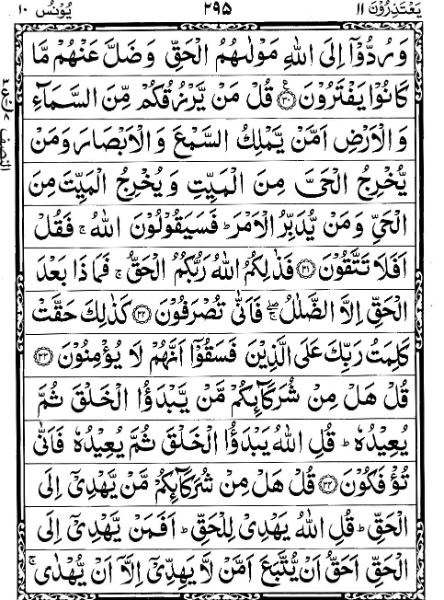 يَعْتَذِرُوْنَ ١١ ٢٩٥ يُوْنُس ١٠
وَرُدُّوْٓا اِلَى اللّٰهِ مَوْلٰىهُمُ الْحَقِّ وَضَلَّ عَنْهُمْ مَّا
كَانُوْا يَفْتَرُوْنَ ﴿٣٠﴾ ع قُلْ مَنْ يَّرْزُقُكُمْ مِّنَ السَّمَآءِ
وَالْاَرْضِ اَمَّنْ يَّمْلِكُ السَّمْعَ وَالْاَبْصَارَ وَمَنْ
يُّخْرِجُ الْحَيَّ مِنَ الْمَيِّتِ وَيُخْرِجُ الْمَيِّتَ مِنَ
الْحَيِّ وَمَنْ يُّدَبِّرُ الْاَمْرَ ؕ فَسَيَقُوْلُوْنَ اللّٰهُ ۚ فَقُلْ
اَفَلَا تَتَّقُوْنَ ﴿٣١﴾ فَذٰلِكُمُ اللّٰهُ رَبُّكُمُ الْحَقُّ ۚ فَمَاذَا بَعْدَ
الْحَقِّ اِلَّا الضَّلٰلُ ۖۚ فَاَنّٰى تُصْرَفُوْنَ ﴿٣٢﴾ كَذٰلِكَ حَقَّتْ
كَلِمَتُ رَبِّكَ عَلَى الَّذِيْنَ فَسَقُوْٓا اَنَّهُمْ لَا يُؤْمِنُوْنَ ﴿٣٣﴾
قُلْ هَلْ مِنْ شُرَكَآئِكُمْ مَّنْ يَّبْدَؤُا الْخَلْقَ ثُمَّ
يُعِيْدُهٗ ؕ قُلِ اللّٰهُ يَبْدَؤُا الْخَلْقَ ثُمَّ يُعِيْدُهٗ فَاَنّٰى
تُؤْفَكُوْنَ ﴿٣٤﴾ قُلْ هَلْ مِنْ شُرَكَآئِكُمْ مَّنْ يَّهْدِيْٓ اِلَى
الْحَقِّ ؕ قُلِ اللّٰهُ يَهْدِيْ لِلْحَقِّ ؕ اَفَمَنْ يَّهْدِيْٓ اِلَى
الْحَقِّ اَحَقُّ اَنْ يُّتَّبَعَ اَمَّنْ لَّا يَهِدِّيْٓ اِلَّآ اَنْ يُّهْدٰى ۚ
النصف